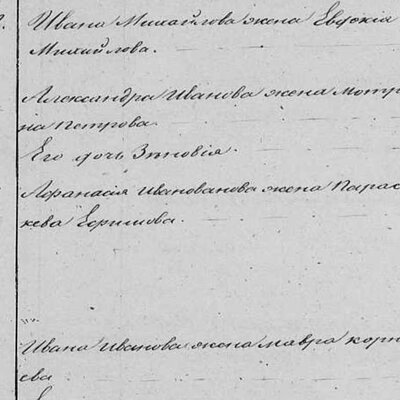 Ивана Михайлова жена Евдокія
Михайлова.
Александра Иванова жена Матр
на Петрова
Его дочь Зѣновія.
Афанасія Иванованова жена Парас
кева Ефимова.
Ивана Иванова жена Мавра Корн
ева